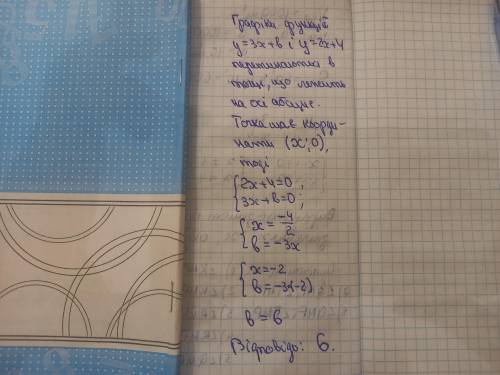 Графіки функцій
y=3x+в і y=2x+4
перетинаються в
точці, що лежить
на осі абсцис.
Точка має коорди-
нати (x; 0),
тоді
{2x+4=0;
{3x+в=0;
{x=-4/2
{в=-3x
{x=-2
{в=-3·(-2)
в = 6
Відповідь: 6.